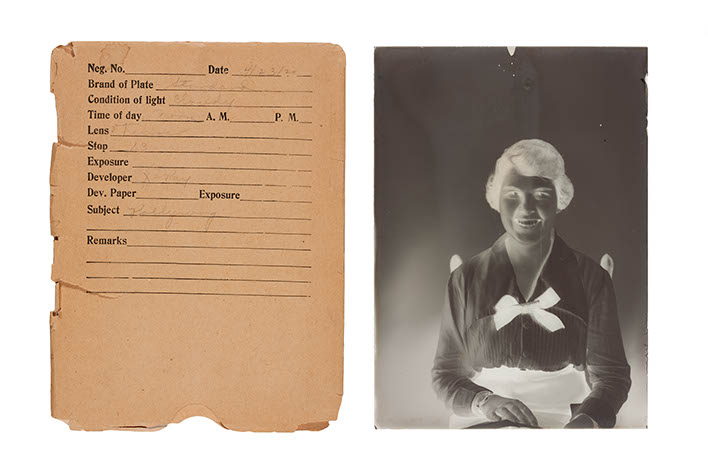 Neg. No. Date 4/23/20
Brand of Plate
Condition of light Cloudy
Time of day A. M. P. M.
Lens
Stop
Exposure
Developer X-Ray
Dev. Paper Exposure
Subject
Remarks